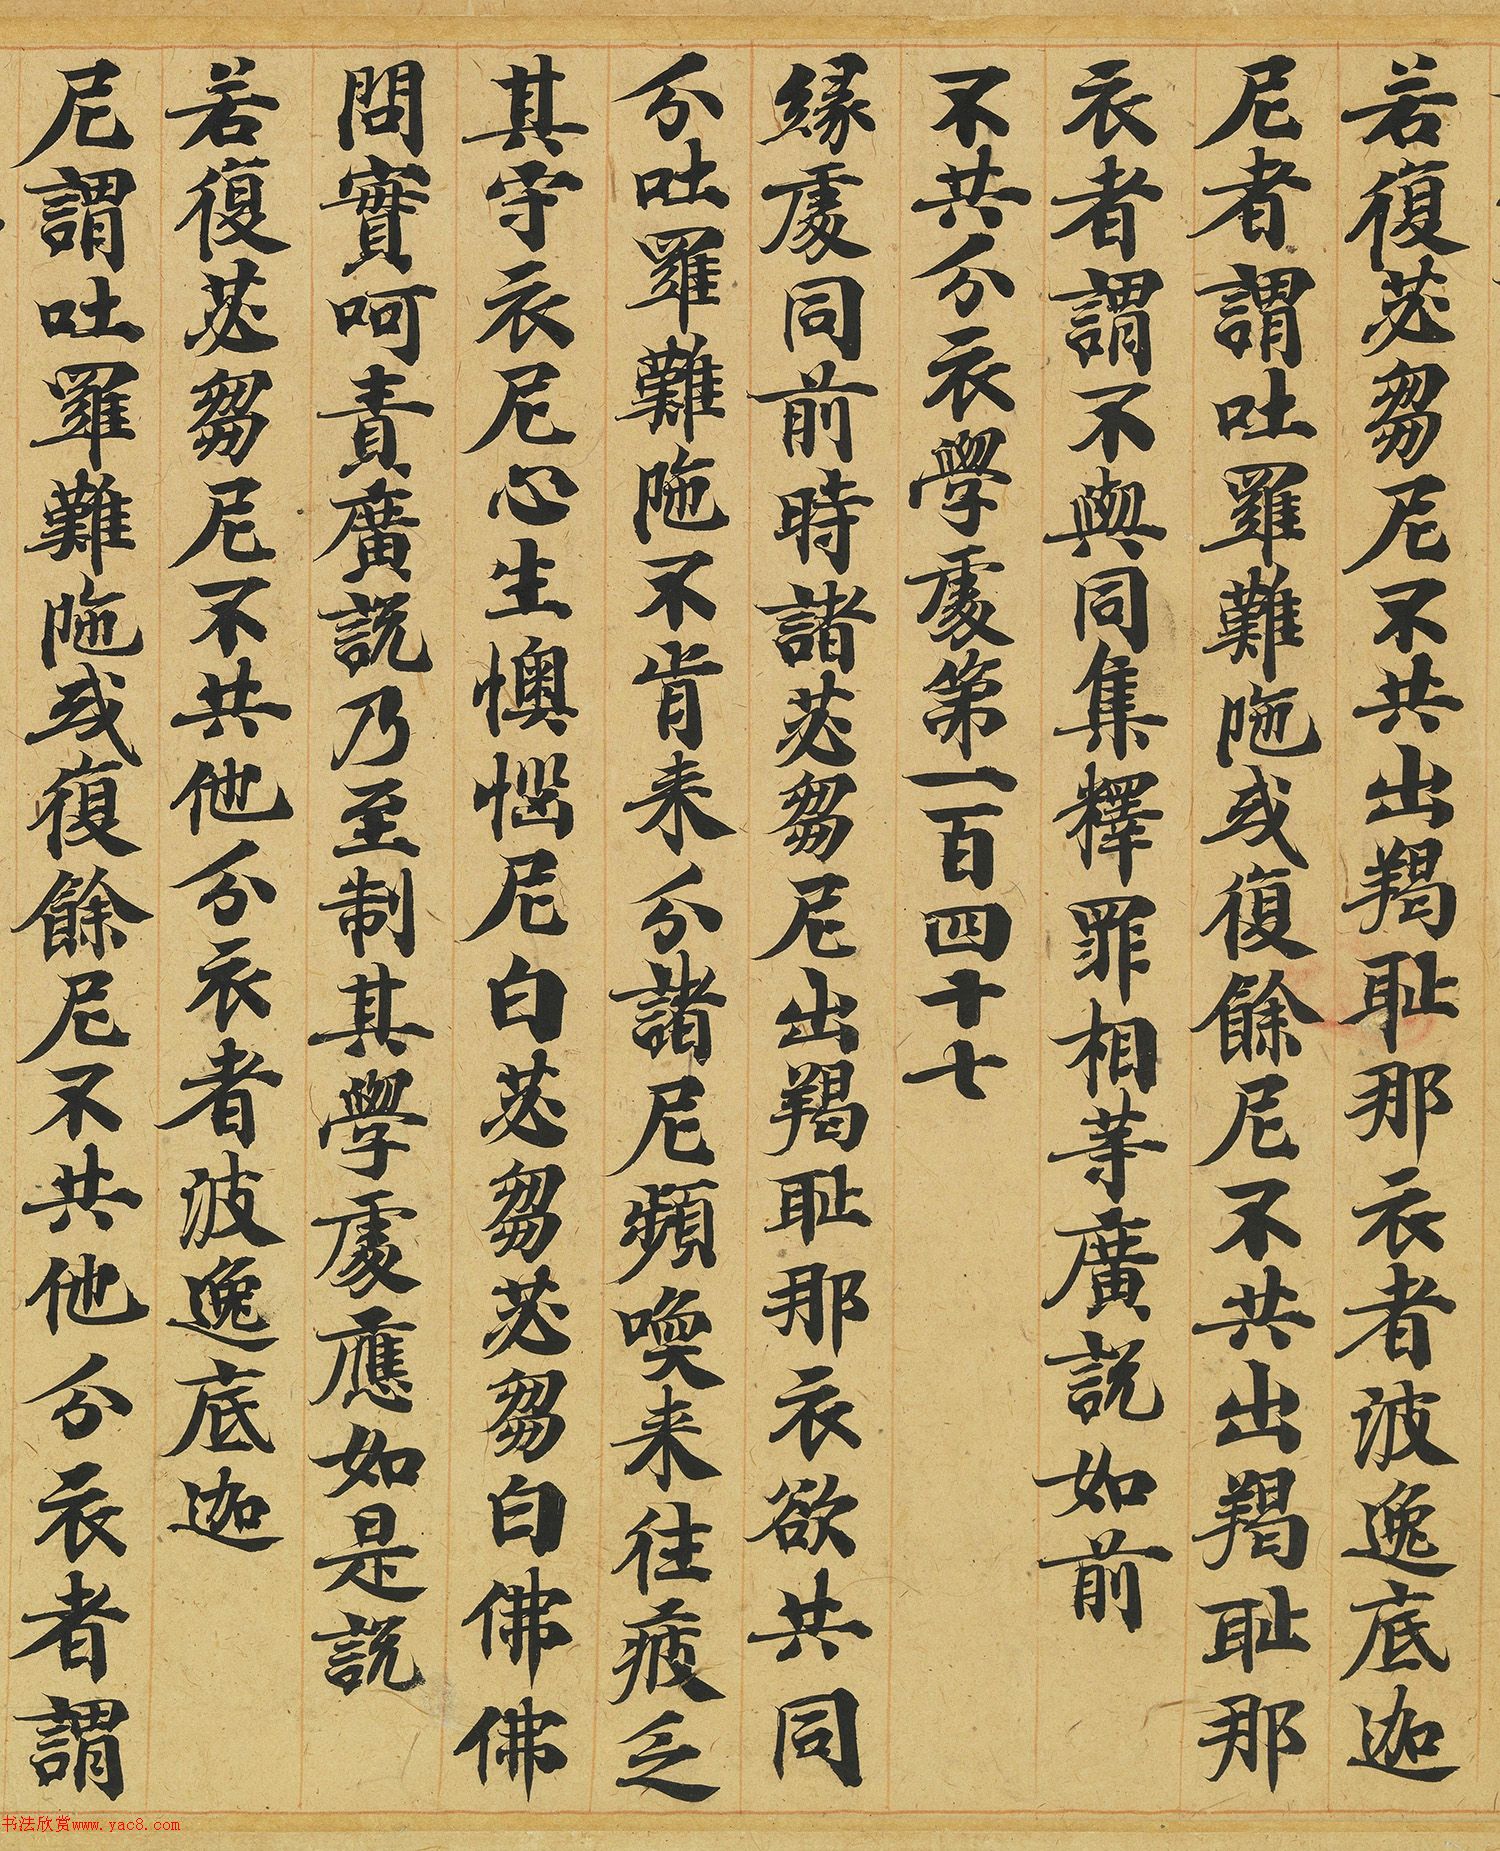 若復苾芻尼不共出羯耻那衣者波逸底迦
尼者謂吐羅難陁或復餘尼不共出羯耻那
衣者謂不與同集釋罪相等廣說如前
不共分衣學處第一百四十七
緣處同前時諸苾芻尼出羯耻那衣欲共同
分吐羅難陁不肯来分諸尼頻喚来往疲乏
其守衣尼心生懊惱尼白苾芻苾芻白佛佛
問實呵責廣說乃至制其學處應如是說
若復苾芻尼不共他分衣者波逸底迦
尼謂吐羅難陁或復餘尼不共他分衣者謂
书法欣赏www.yac8.com